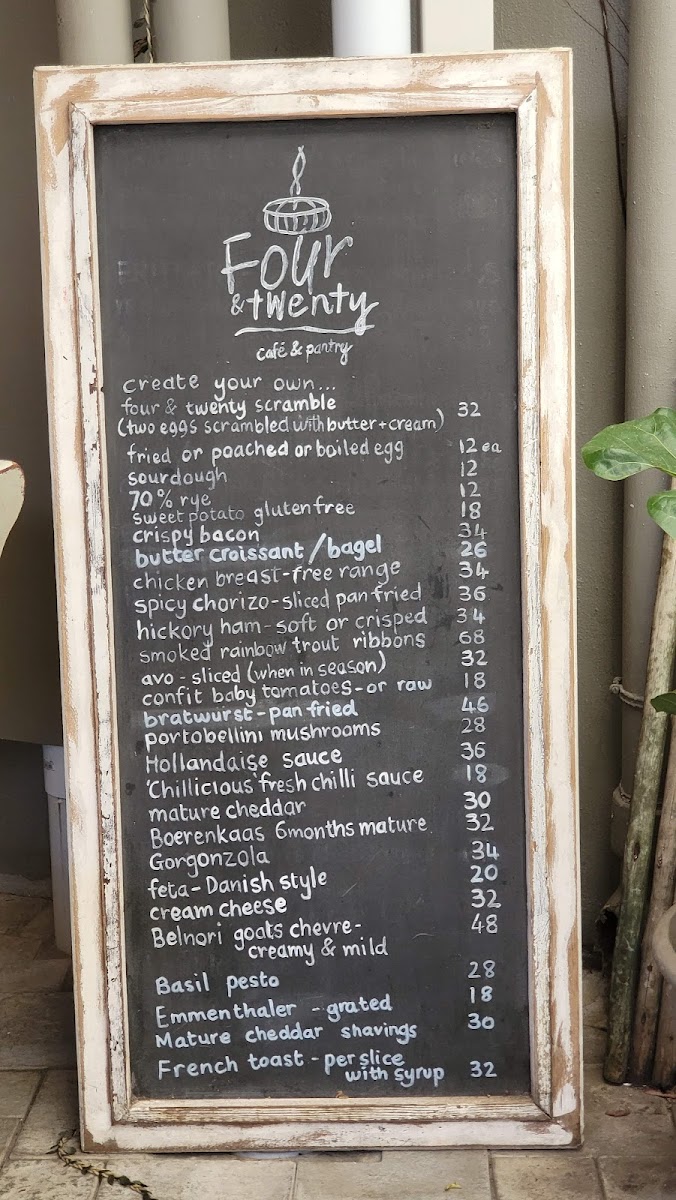 Four
& twenty
café & pantry
create your own...
four & twenty scramble 32
(two eggs scrambled with butter + cream)
fried or poached or boiled egg 12 ea
sourdough 12
70% rye 12
sweet potato gluten free 18
crispy bacon 34
butter croissant / bagel 26
chicken breast - free range 34
spicy chorizo - sliced pan fried 36
hickory ham - soft or crisped 34
smoked rainbow trout ribbons 68
avo - sliced (when in season) 32
confit baby tomatoes - or raw 18
bratwurst - pan fried 46
portobellini mushrooms 28
Hollandaise sauce 36
'Chillicious' fresh chilli sauce 18
mature cheddar 30
Boerenkaas 6months mature 32
Gorgonzola 34
feta - Danish style 20
cream cheese 32
Belnori goats chevre - 48
creamy & mild
Basil pesto 28
Emmenthaler - grated 18
Mature cheddar shavings 30
French toast - per slice
with syrup 32